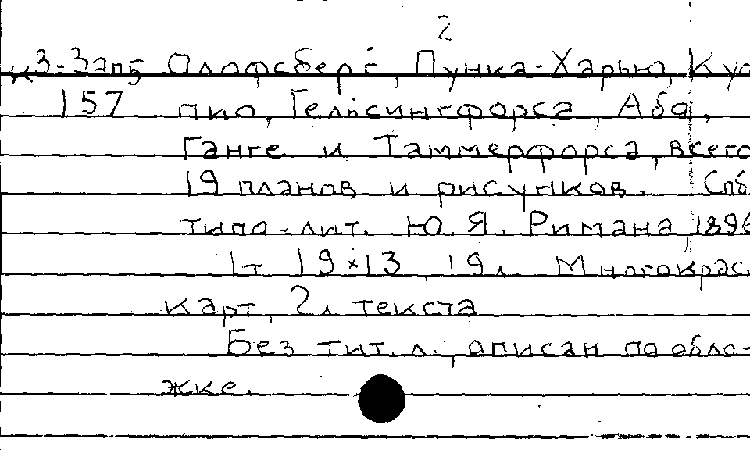 2
К3-Зап5 Олафсберг, Пунка-Харью, Куо
157 пио, Гельсингфорса, Або,
Ганге и Таммерфорса, всего
19 планов и рисунков. Спб
типо-лит. Ю.Я. Римана, 1896
1т 19×13, 19л. Многокрас.
карт, 2л текста
Без тит. л., описан по обло-
жке.